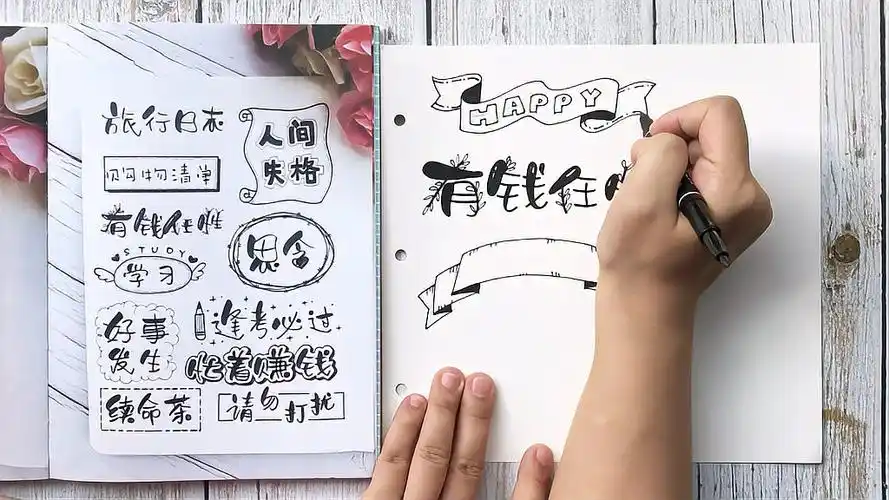 旅行日本
人间
失格
购物清单
有钱任性
STUDY
学习
思念
好事
发生
逢考必过
忙着赚钱
续命茶
请勿打扰
HAPPY
有钱任